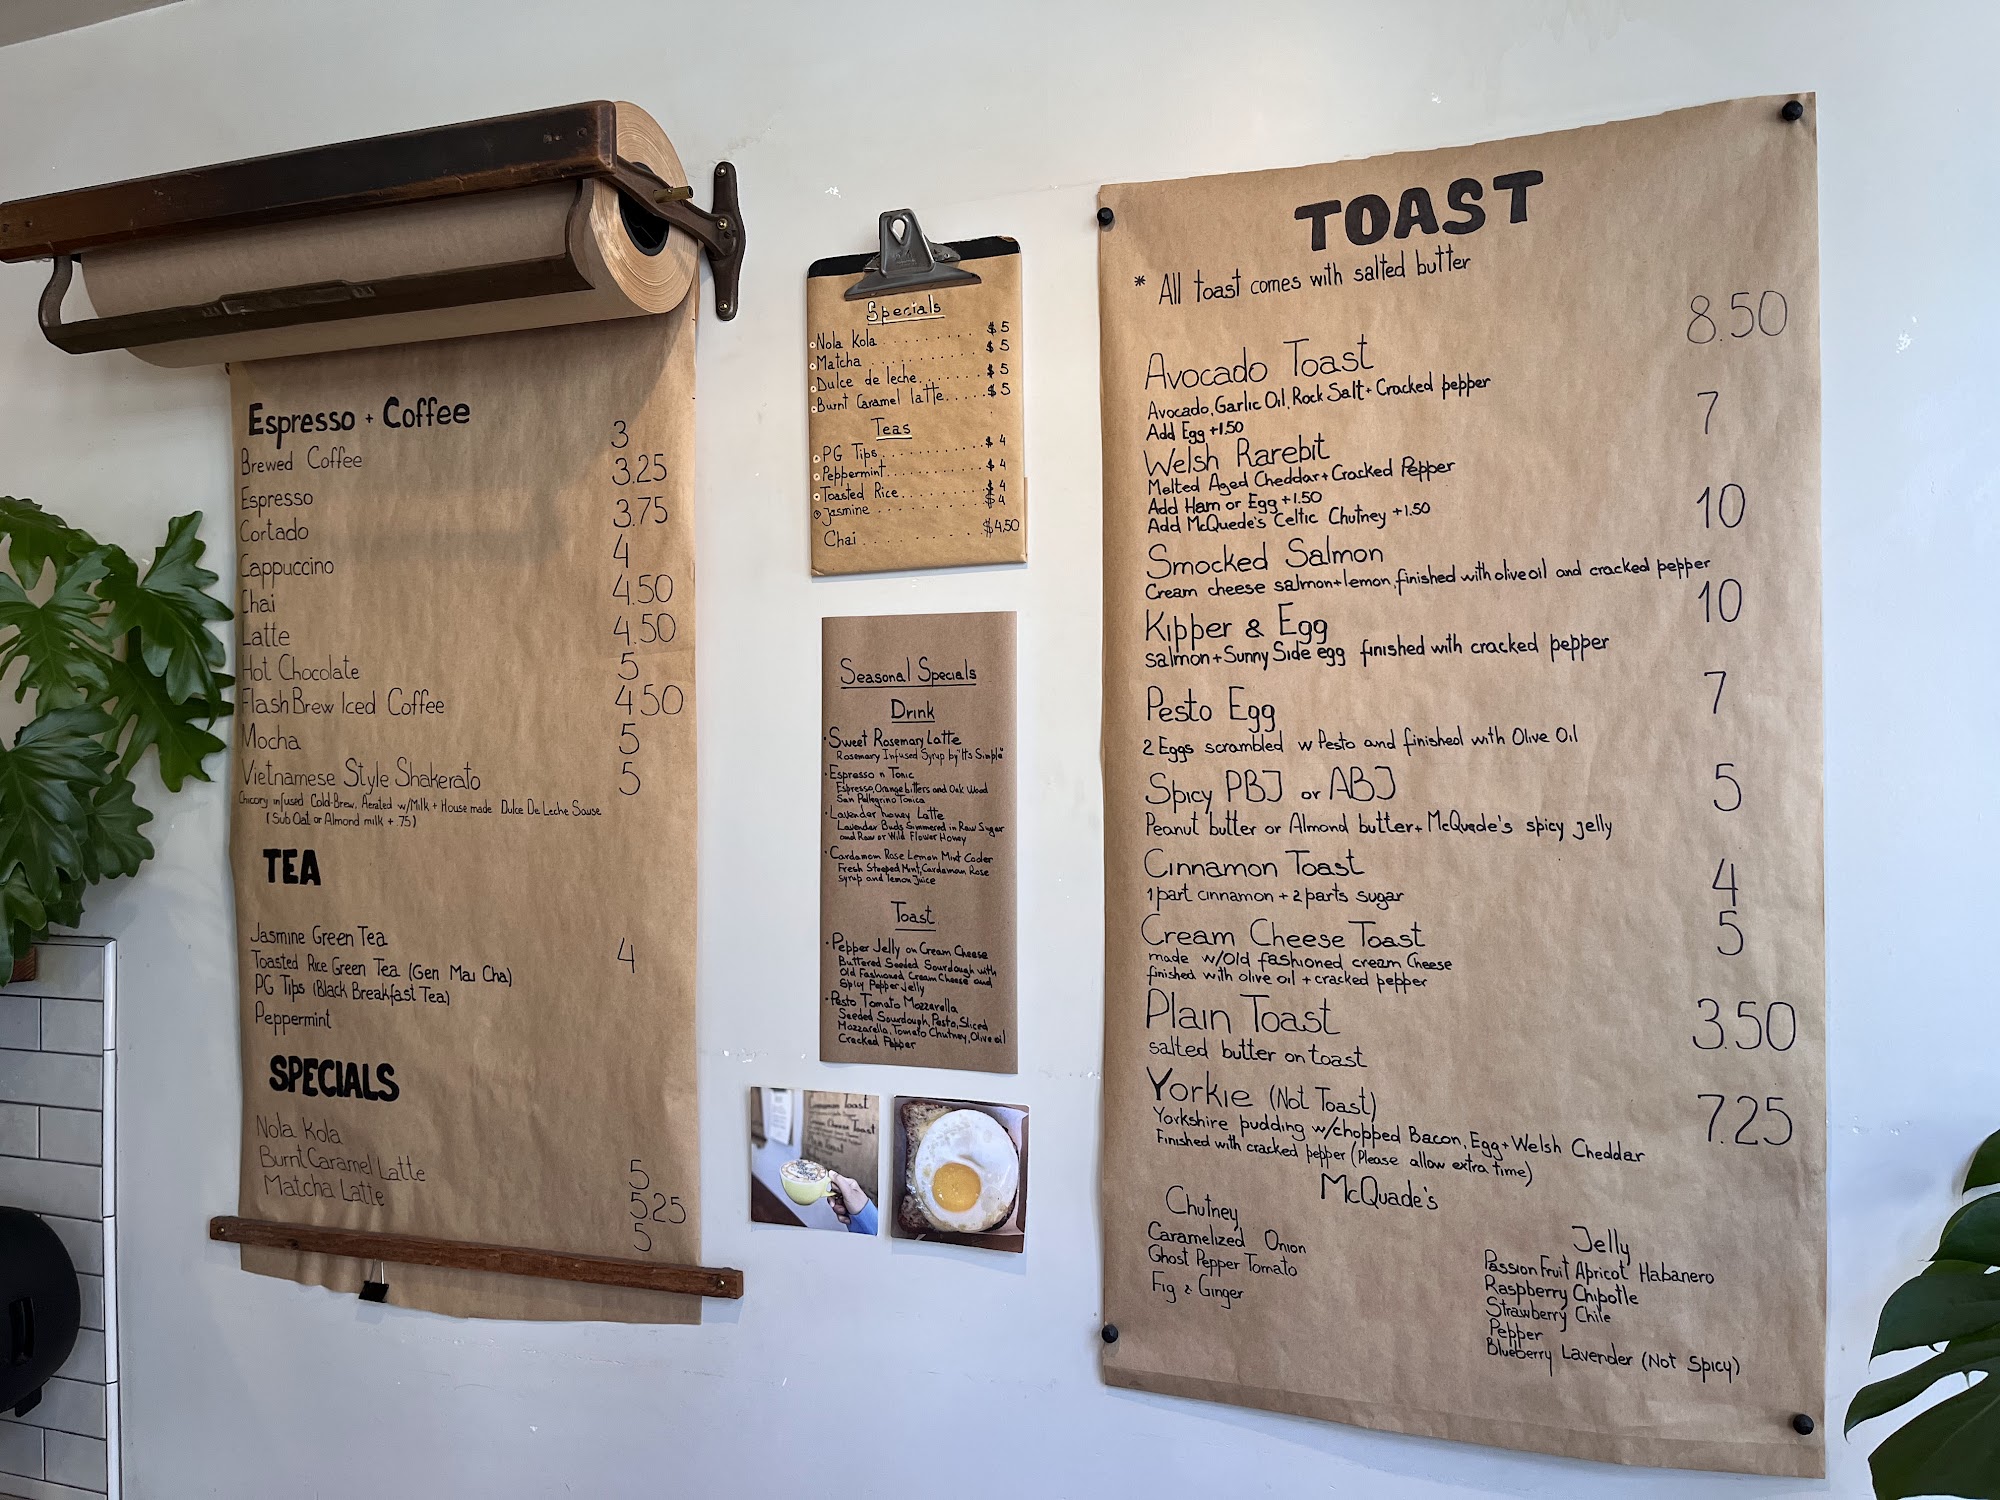 Espresso + Coffee
Brewed Coffee 3
Espresso 3.25
Cortado 3.75
Cappuccino 4
Chai 4.50
Latte 4.50
Hot Chocolate 5
Flash Brew Iced Coffee 4.50
Mocha 5
Vietnamese Style Shakerato 5
Chicory infused Cold-Brew, Aerated w/Milk + House made Dulce De Leche Sause
(Sub Oat or Almond milk + .75)
TEA
Jasmine Green Tea 4
Toasted Rice Green Tea (Gen Mai Cha)
PG Tips (Black Breakfast Tea)
Peppermint
SPECIALS
Nola Kola 5
Burnt Caramel Latte 5.25
Matcha Latte 5
Specials
Nola Kola $5
Matcha $5
Dulce de leche $5
Burnt Caramel latte $5
Teas
PG Tips $4
Peppermint $4
Toasted Rice $4
Jasmine $4
Chai $4.50
Seasonal Specials
Drink
Sweet Rosemary Latte
Rosemary Infused Syrup by "It's Simple"
Espresso n Tonic
Espresso, Orange bitters and Oak Wood
San Pellegrino Tonica
Lavender honey Latte
Lavender Buds Simmered in Raw Sugar
and Raw or Wild Flower Honey
Cardamom Rose Lemon Mint Cooler
Fresh Steeped Mint, Cardamom Rose
syrup and lemon Juice
Toast
Pepper Jelly on Cream Cheese
Buttered Seeded Sourdough with
Old Fashioned Cream Cheese and
Spicy Pepper Jelly
Pesto Tomato Mozzarella
Seeded Sourdough, Pesto, Sliced
Mozzarella, Tomato Chutney, Olive oil
Cracked Pepper
Cinnamon Toast
Cream Cheese Toast
TOAST
* All toast comes with salted butter
Avocado Toast 8.50
Avocado, Garlic Oil, Rock Salt + Cracked pepper
Add Egg +1.50
Welsh Rarebit 7
Melted Aged Cheddar + Cracked Pepper
Add Ham or Egg +1.50
Add McQuede's Celtic Chutney +1.50
Smocked Salmon 10
Cream cheese salmon + lemon, finished with olive oil and cracked pepper
Kipper & Egg 10
salmon + Sunny Side egg finished with cracked pepper
Pesto Egg 7
2 Eggs scrambled w Pesto and finished with Olive Oil
Spicy PBJ or ABJ 5
Peanut butter or Almond butter + McQuade's spicy jelly
Cinnamon Toast 4
1 part cinnamon + 2 parts sugar
Cream Cheese Toast 5
made w/Old fashioned cream Cheese
finished with olive oil + cracked pepper
Plain Toast 3.50
salted butter on toast
Yorkie (Not Toast) 7.25
Yorkshire pudding w/chopped Bacon, Egg + Welsh Cheddar
Finished with cracked pepper (Please allow extra time)
McQuade's
Chutney
Caramelized Onion
Ghost Pepper Tomato
Fig & Ginger
Jelly
Passion Fruit Apricot Habanero
Raspberry Chipotle
Strawberry Chile
Pepper
Blueberry Lavender (Not Spicy)